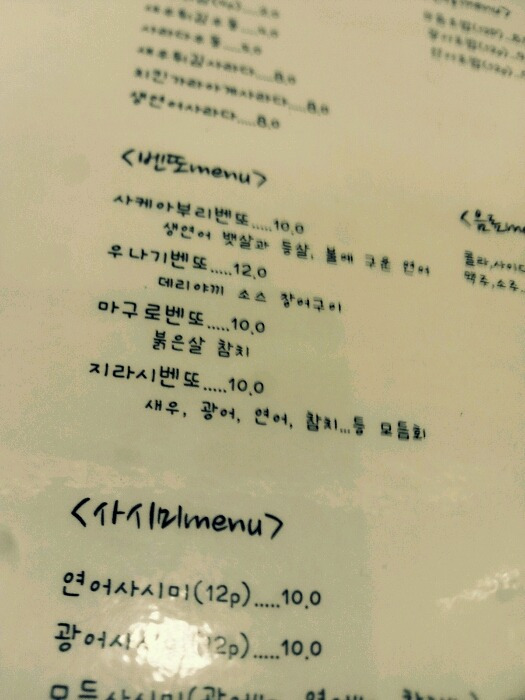 새우튀김우동....
사라다우동....
새우튀김사라다....8.0
치킨가라아게사라다....8.0
생연어사라다....8.0
<벤또menu>
사케아부리벤또.....10.0
생연어 뱃살과 등살, 불에 구운 연어
우나기벤또.....12.0
데리야끼 소스 장어구이
마구로벤또.....10.0
붉은살 참치
지라시벤또.....10.0
새우, 광어, 연어, 참치...등 모듬회
콜라,사이다
맥주,소주..
<사시미menu>
연어사시미(12p).....10.0
광어사시 (12p).....10.0
모듬사시미(광어